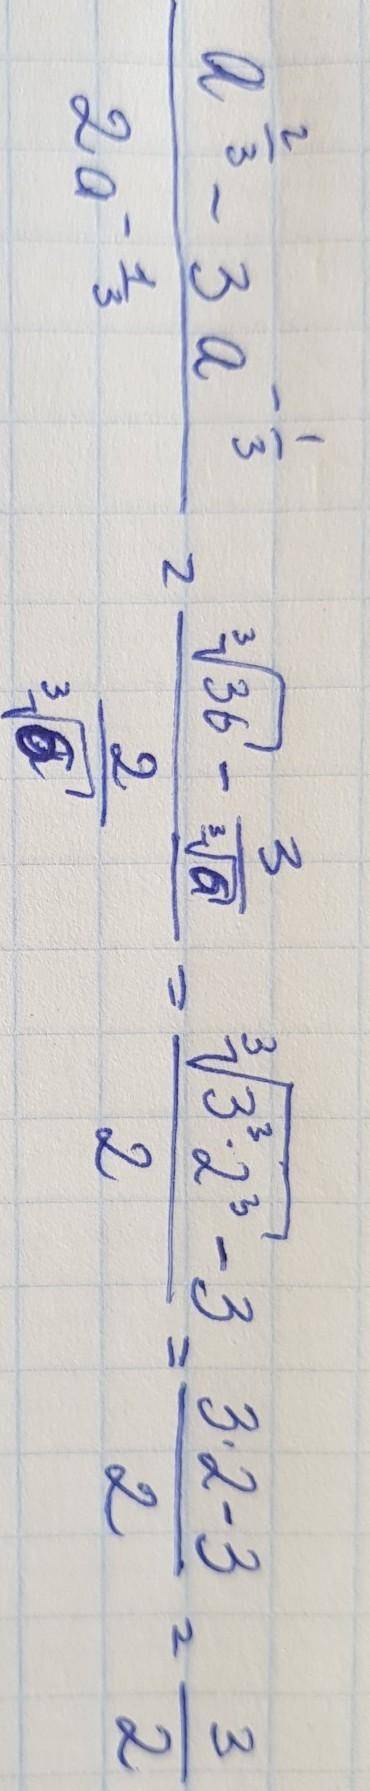 \frac{a^{\frac{2}{3}} - 3a^{-\frac{1}{3}}}{2a^{-\frac{1}{3}}} = \frac{\sqrt[3]{36} - \frac{3}{\sqrt[3]{6}}}{\frac{2}{\sqrt[3]{6}}} = \frac{\sqrt[3]{3^3 \cdot 2^3} - 3}{2} = \frac{3 \cdot 2 - 3}{2} = \frac{3}{2}